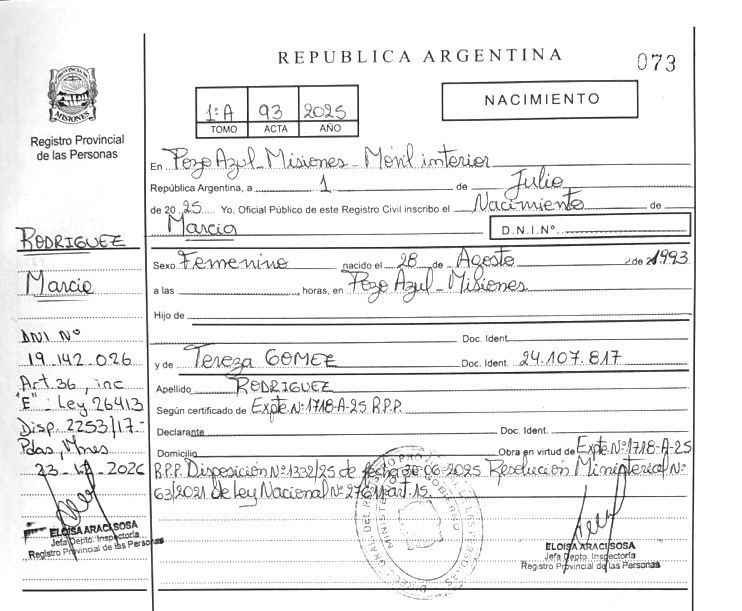 PROVINCIA DE
MISIONES
Registro Provincial
de las Personas
RODRIGUEZ
Marcia
DNI Nº
19.142.026
Art. 36, inc
"E" Ley 26413
Disp. 2253/17-
Pdas, Mnes
2026
ELOISA ARACI SOSA
Jefa Depto. Inspectoría
Registro Provincial de las Personas
REPUBLICA ARGENTINA
073
1ºA 93 2025
TOMO ACTA AÑO
NACIMIENTO
En Pozo Azul-Misiones-Móvil interior
República Argentina, a 1 de Julio
de 2025 Yo, Oficial Público de este Registro Civil inscribo el Nacimiento de
Marcia D.N.I.Nº
Sexo Femenino nacido el 28 de Agosto de 1993
a las horas, en Pozo Azul-Misiones
Hijo de
Doc. Ident.
y de Tereza GOMEZ Doc. Ident. 24.107.817
Apellido RODRIGUEZ
Según certificado de Expte. Nº1718-A-25 R.P.P.
Declarante Doc. Ident.
Domicilio Obra en virtud de Expte Nº1718-A-25
R.P.P. Disposición Nº1332/25 de fecha 30-06-2025 Resolución Ministerial Nº
63/2021 de Ley Nacional Nº 27611 art. 15.
ELOISA ARACI SOSA
Jefa Depto. Inspectoría
Registro Provincial de las Personas